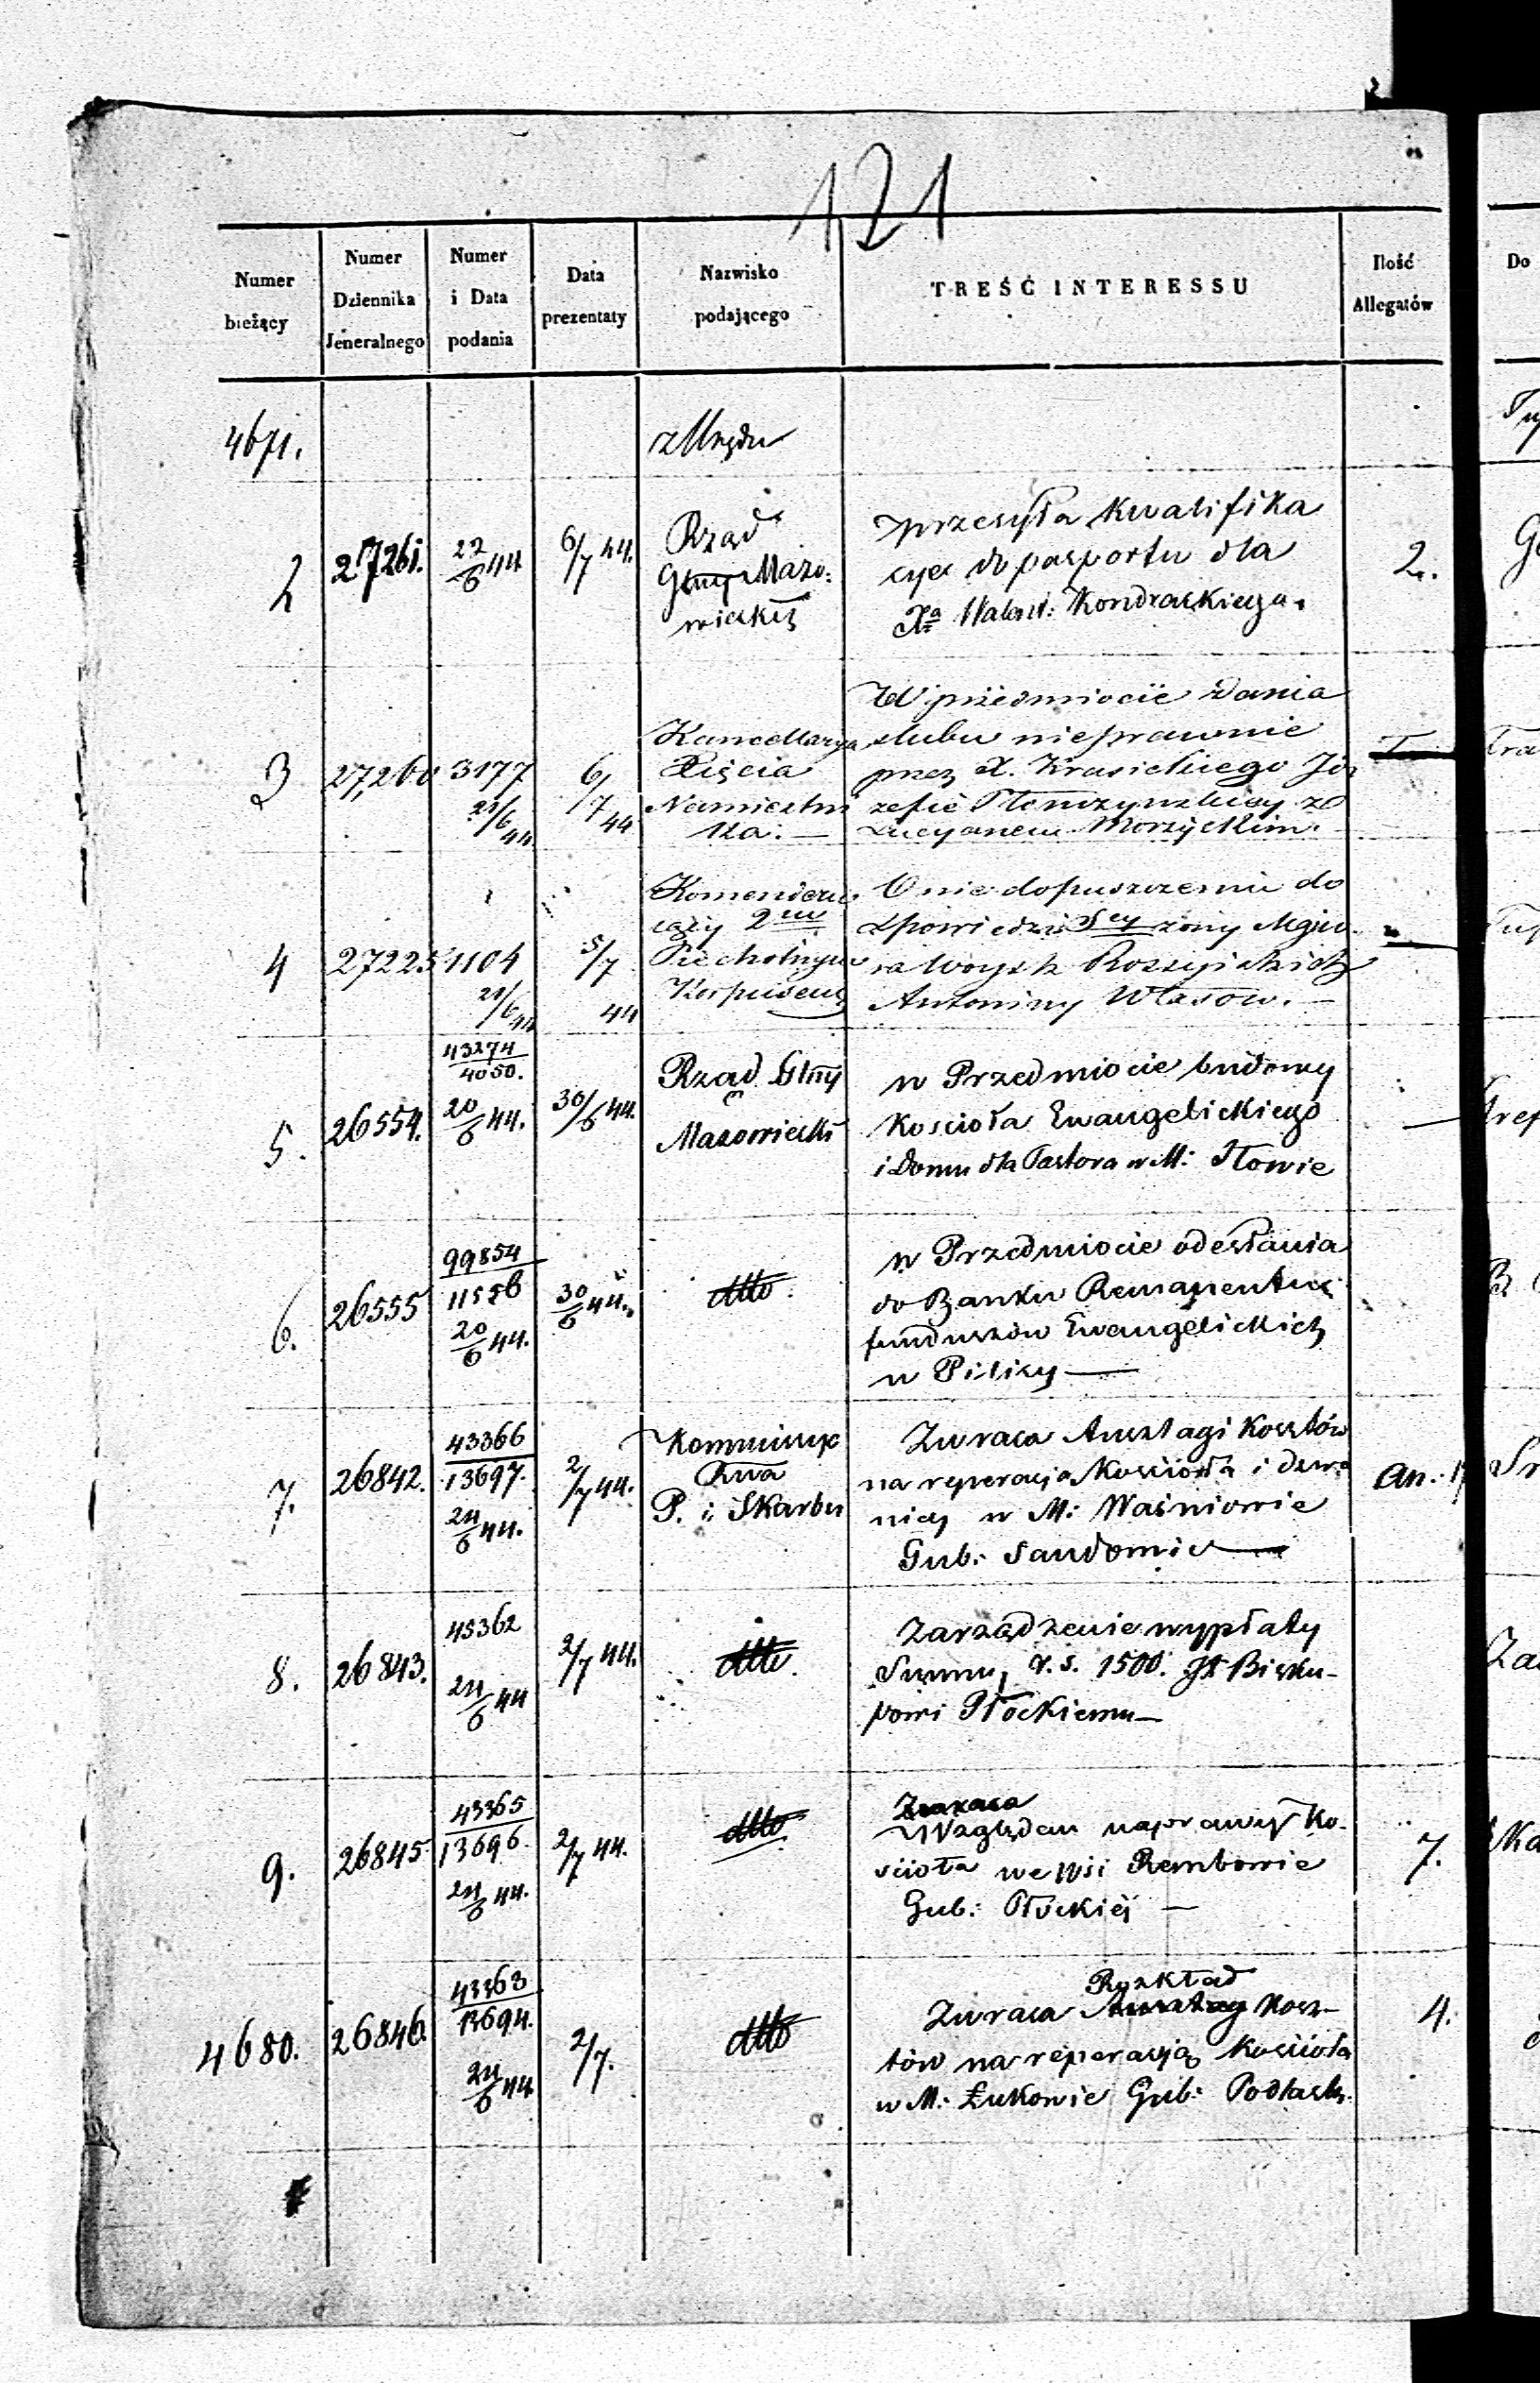 121
Numer bieżący
Numer Dziennika Jeneralnego
Numer i Data podania
Data prezentaty
Nazwisko podającego
TREŚĆ INTERESSU
Ilość Allegatów
Do
4671.
z Urzędu
2
27261.
22/6 44
6/7 44.
Rząd
Gbny Mazo:
wieckiy
przesyła kwalifika
cye do pasportu dla
Xa Walent: Kondrackiego.
2.
3
27,260
3177
21/6 44
6/7 44
Kancellarya
Xięcia
Namiestni
ka. —
W przedmiocie dania
slubu nieprawnie
przez X. Krasickiego Jó
zefie
Lucyanem Morzyckim.
4
27225
1104
21/6 44
5/7 44
Komenderu
iący 2im
Piechotnym
Korpusem
O nie dopuszczeniu do
spowiedzi Sey żony Majo
ra Woysk Rossyiskich
Antoniny Własow. —
5.
26554.
43274
4050.
20/6 44.
30/6 44.
Rząd Gbny
Mazowiecki
w Przedmiocie budowy
Kościoła Ewangelickiego
i domu dla Pastora w M: Iłowie
6.
26555
99854
11556
20/6 44.
30/6 44.
dtto.
w Przedmiocie odesłania
do Banku Remanentu
funduszów Ewangelickich
w Pilicy —
7.
26842.
43366
13697.
24/6 44.
2/7 44.
Kommissya
Rwa
P. i Skarbu
Zwraca Anszlagi Kosztów
na reperacją Kościoła i dzwo
nicy w M: Waśniowie
Gub: Sandomie —
an: 17
8.
26843.
43362
24/6 44
2/7 44.
dtto.
Zarządzenie wypłaty
Summy r. s. 1500. JX Bisku-
powi Płockiemu —
9.
26845
43365
13696.
24/6 44.
2/7 44.
dtto
Zwraca
Względem naprawy Ko-
ścioła we Wsi Rembowie
Gub: Płockiéj —
7.
4680.
26846.
43363
13694.
24/6 44
2/7.
dtto
Rozkład
Zwraca Anszlag Kosz-
tów na reperacją Kościoła
w M: Łukowie Gub: Podlask.
4.